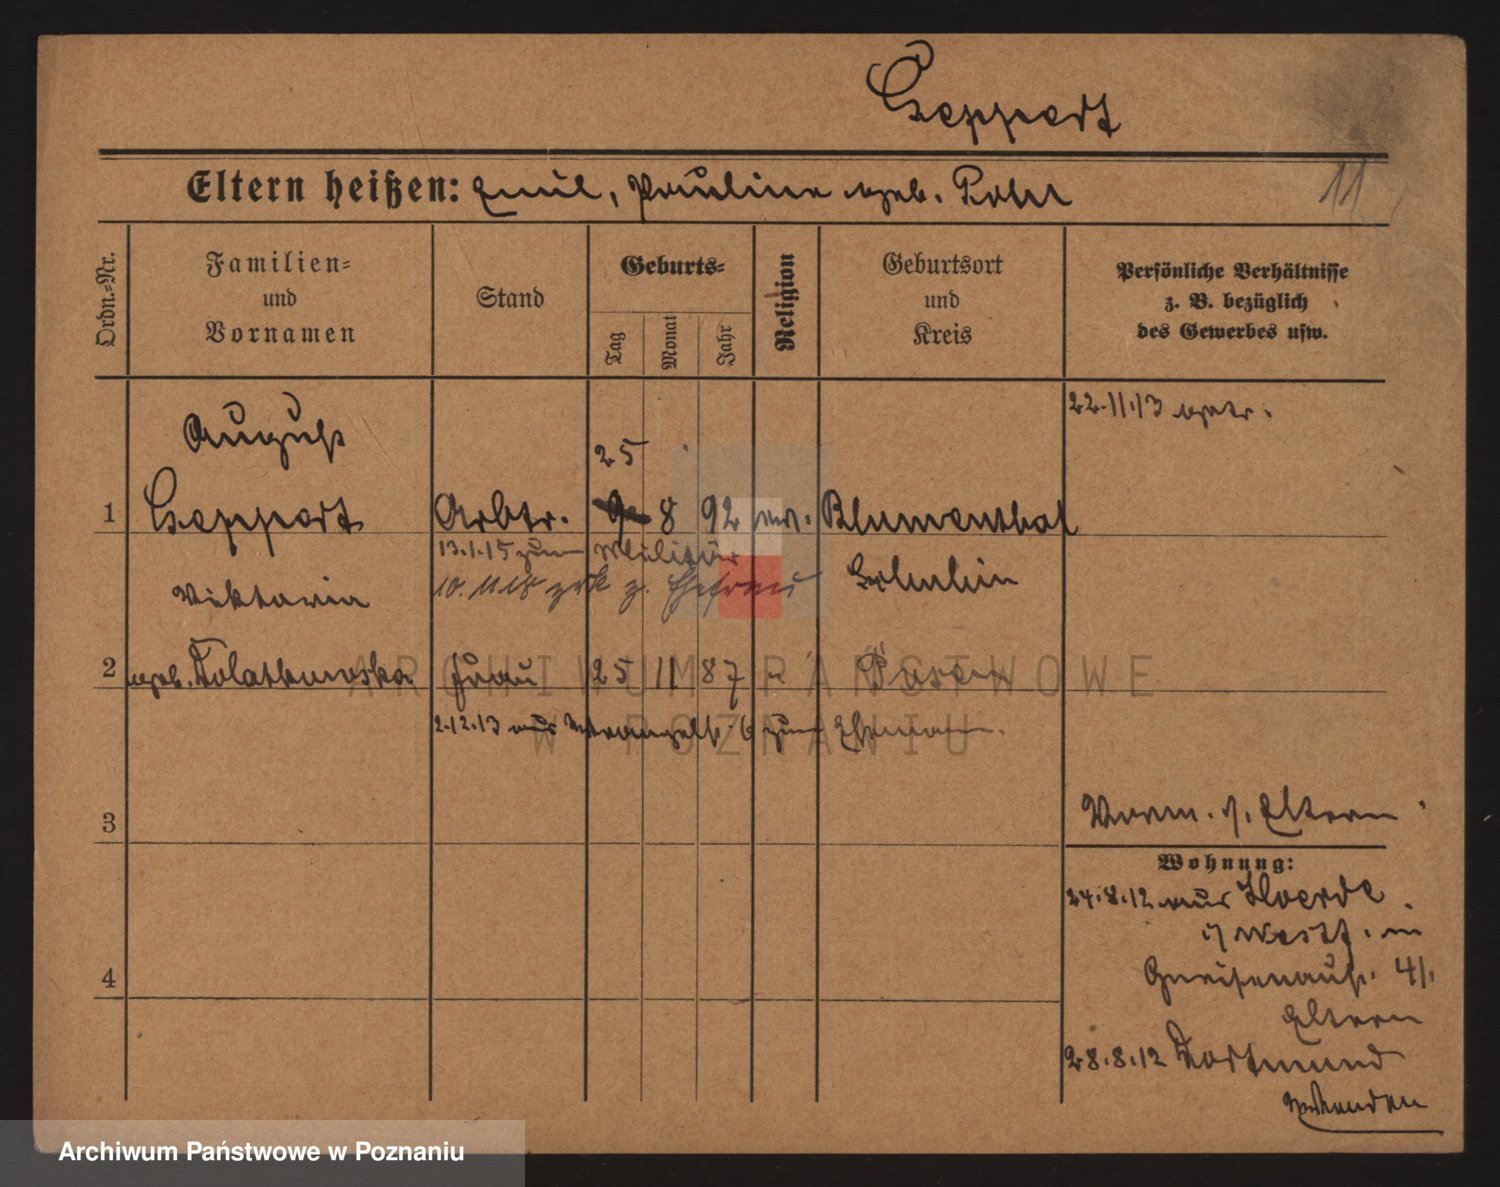 Geppert
Eltern heißen: Emil, Pauline geb. Rohr
11
Ordn.-Nr.
Familien-
und
Vornamen
Stand
Geburts-
Tag
Monat
Jahr
Religion
Geburtsort
und
Kreis
Persönliche Verhältnisse
z. B. bezüglich
des Gewerbes usw.
22.11.13 getr.
August
25
1 Geppert Arbtr. 8 92 ev. Blumenthal
13.1.15 zum Militär
10. 11 18 zrk z. Ehefrau
Viktoria
2 geb. Frau 25 11 87 Posen
2.12.13 aus Wrangelst. 6 zum Ehemann.
3
Vorm. s. Eltern
Wohnung:
24.8.12 aus Hoerde
i/ Westf. in
Gneisenaust. 4 I.
Eltern
4
28.8.12 Dortmund
ARCHIWUM PAŃSTWOWE
W POZNANIU
Archiwum Państwowe w Poznaniu